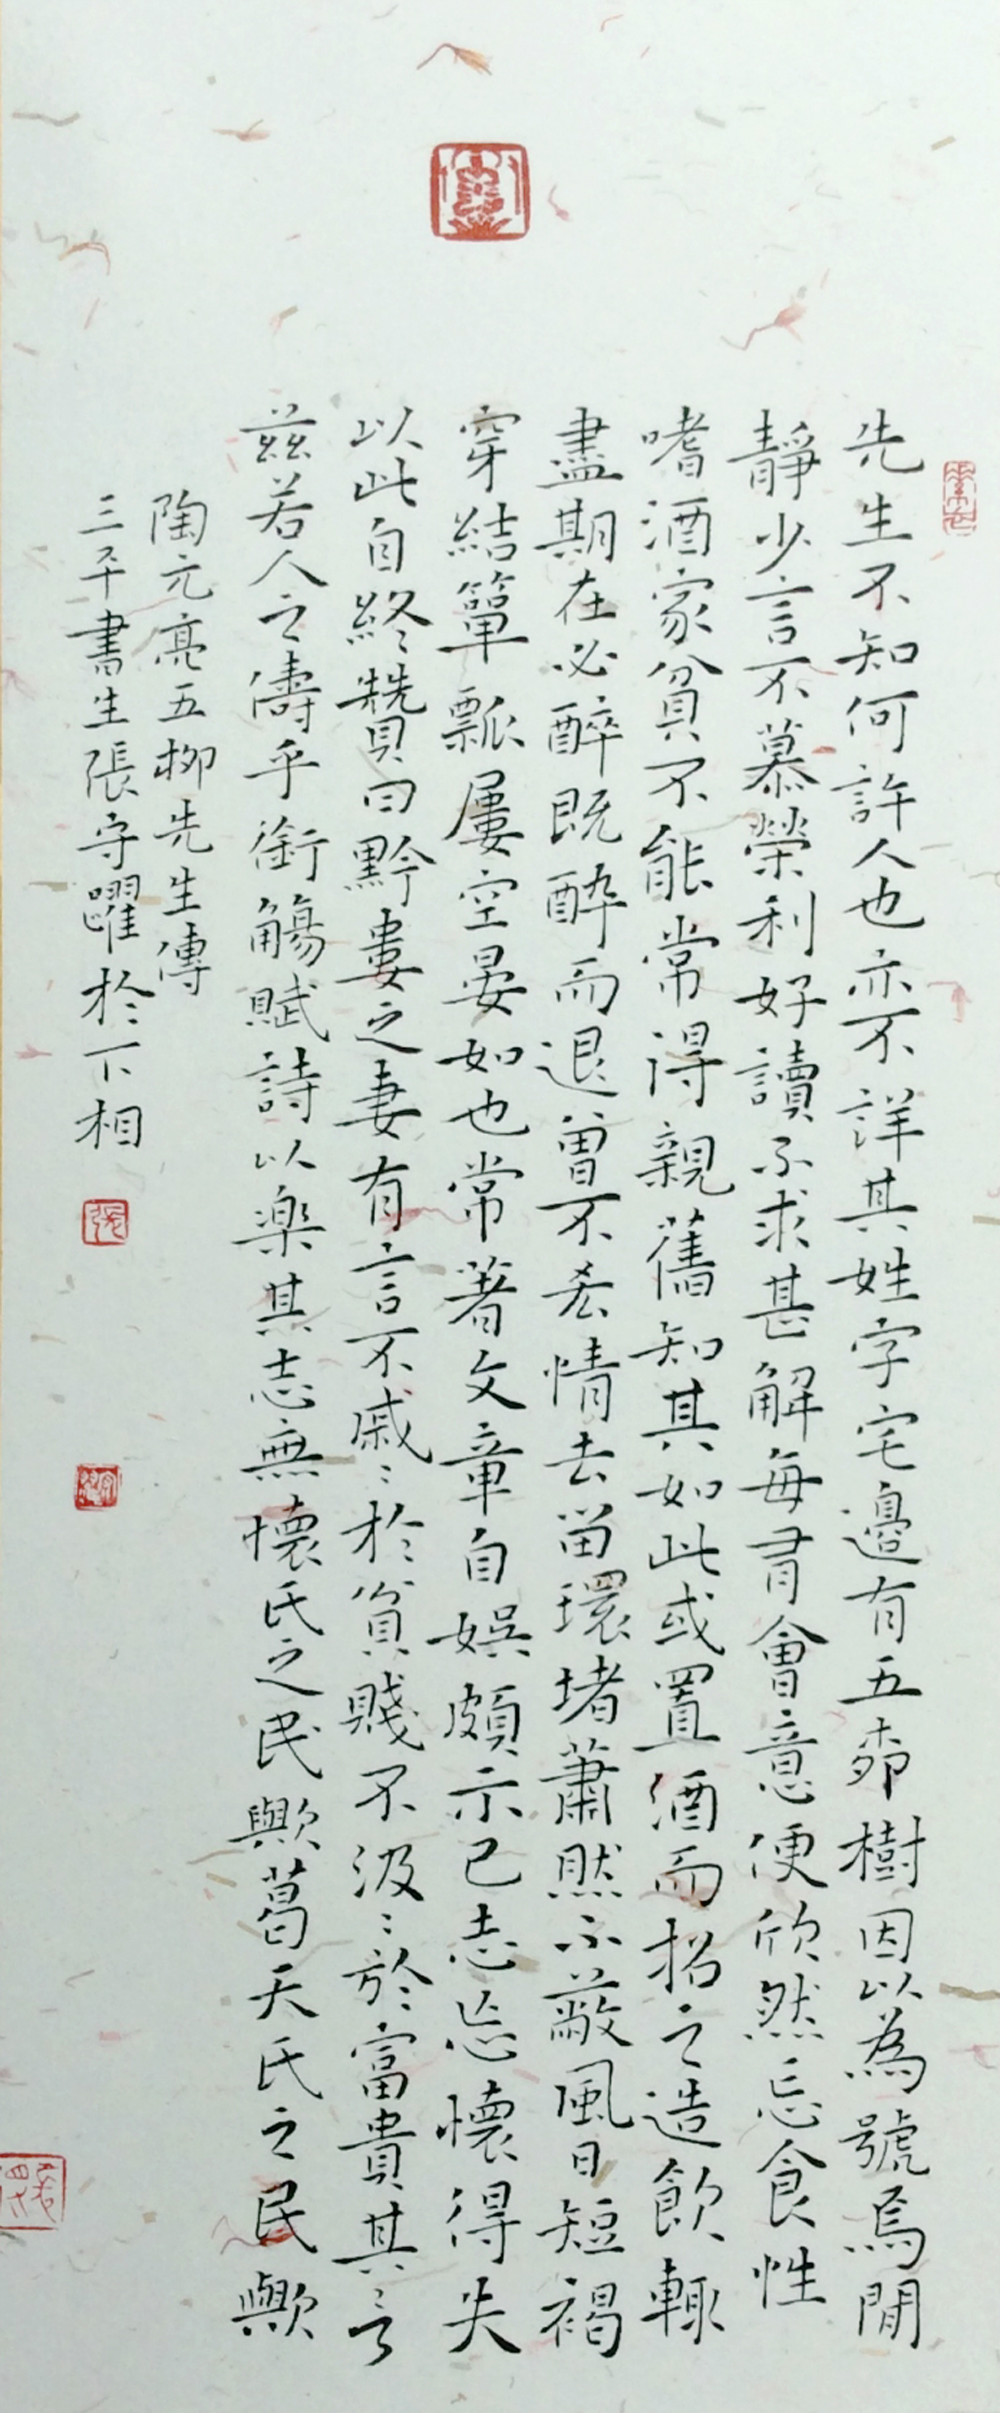 先生不知何許人也亦不詳其姓字宅邊有五桺樹因以為號焉閒
靜少言不慕榮利好讀不求甚解每有會意便欣然忘食性
嗜酒家貧不能常得親舊知其如此或置酒而招之造飲輒
盡期在必醉既醉而退曾不吝情去留環堵蕭然不蔽風日短褐
穿結簞瓢屢空晏如也常著文章自娛頗示己志忘懷得失
以此自終贊曰黔婁之妻有言不戚〻於貧賤不汲〻於富貴其言
茲若人之儔乎銜觴賦詩以樂其志無懷氏之民歟葛天氏之民歟
陶元亮五柳先生傳
三平書生張守躍於下相
張